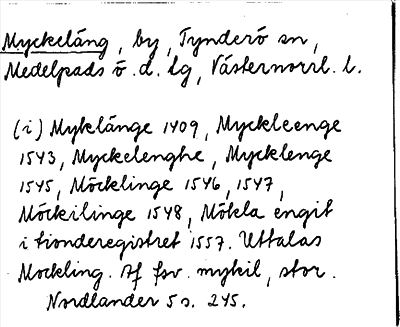 Myckeläng, by, Tynderö sn,
Medelpads ö. d. lg, Västernorrl. l.
(i) Myklänge 1409, Myckleenge
1543, Myckelenghe, Mycklenge
1545, Möcklinge 1546, 1547,
Möckilinge 1548, Mökla engit
i tionderegistret 1557. Uttalas
Mockling. Af fsv. mykil, stor.
Nordlander 5 s. 245.